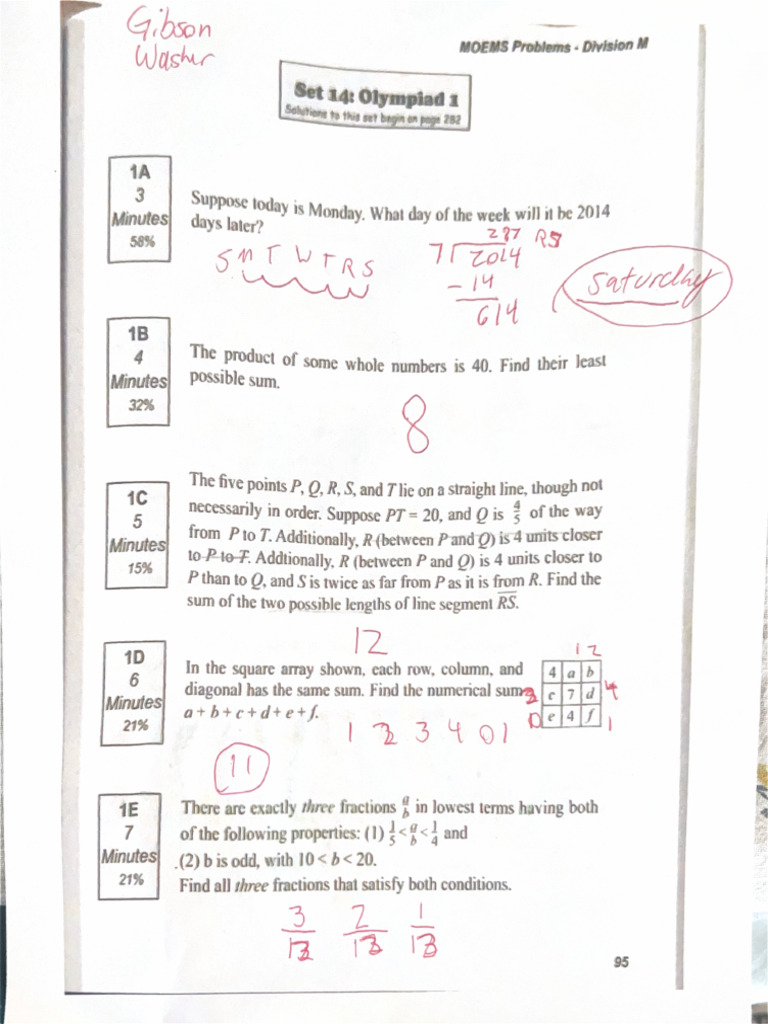 Gibson
Washer
MOEMS Problems - Division M
Set 14: Olympiad 1
Solutions to this set begin on page 282
1A
3
Minutes
58%
Suppose today is Monday. What day of the week will it be 2014
days later?
S M T W T R S
287 R5
7 2014
- 14
614
Saturday
1B
4
Minutes
32%
The product of some whole numbers is 40. Find their least
possible sum.
8
1C
5
Minutes
15%
The five points P, Q, R, S, and T lie on a straight line, though not
necessarily in order. Suppose PT = 20, and Q is 4/5 of the way
from P to T. Additionally, R (between P and Q) is 4 units closer
to P to T. Addtionally, R (between P and Q) is 4 units closer to
P than to Q, and S is twice as far from P as it is from R. Find the
sum of the two possible lengths of line segment RS.
12
1D
6
Minutes
21%
In the square array shown, each row, column, and
diagonal has the same sum. Find the numerical sum
a + b + c + d + e + f.
1 2
4 a b
c 7 d 4
0 e 4 f 1
1 3 3 4 0 1
11
1E
7
Minutes
21%
There are exactly three fractions a/b in lowest terms having both
of the following properties: (1) 1/5 < a/b < 1/4 and
(2) b is odd, with 10 < b < 20.
Find all three fractions that satisfy both conditions.
3/13 2/13 1/13
95